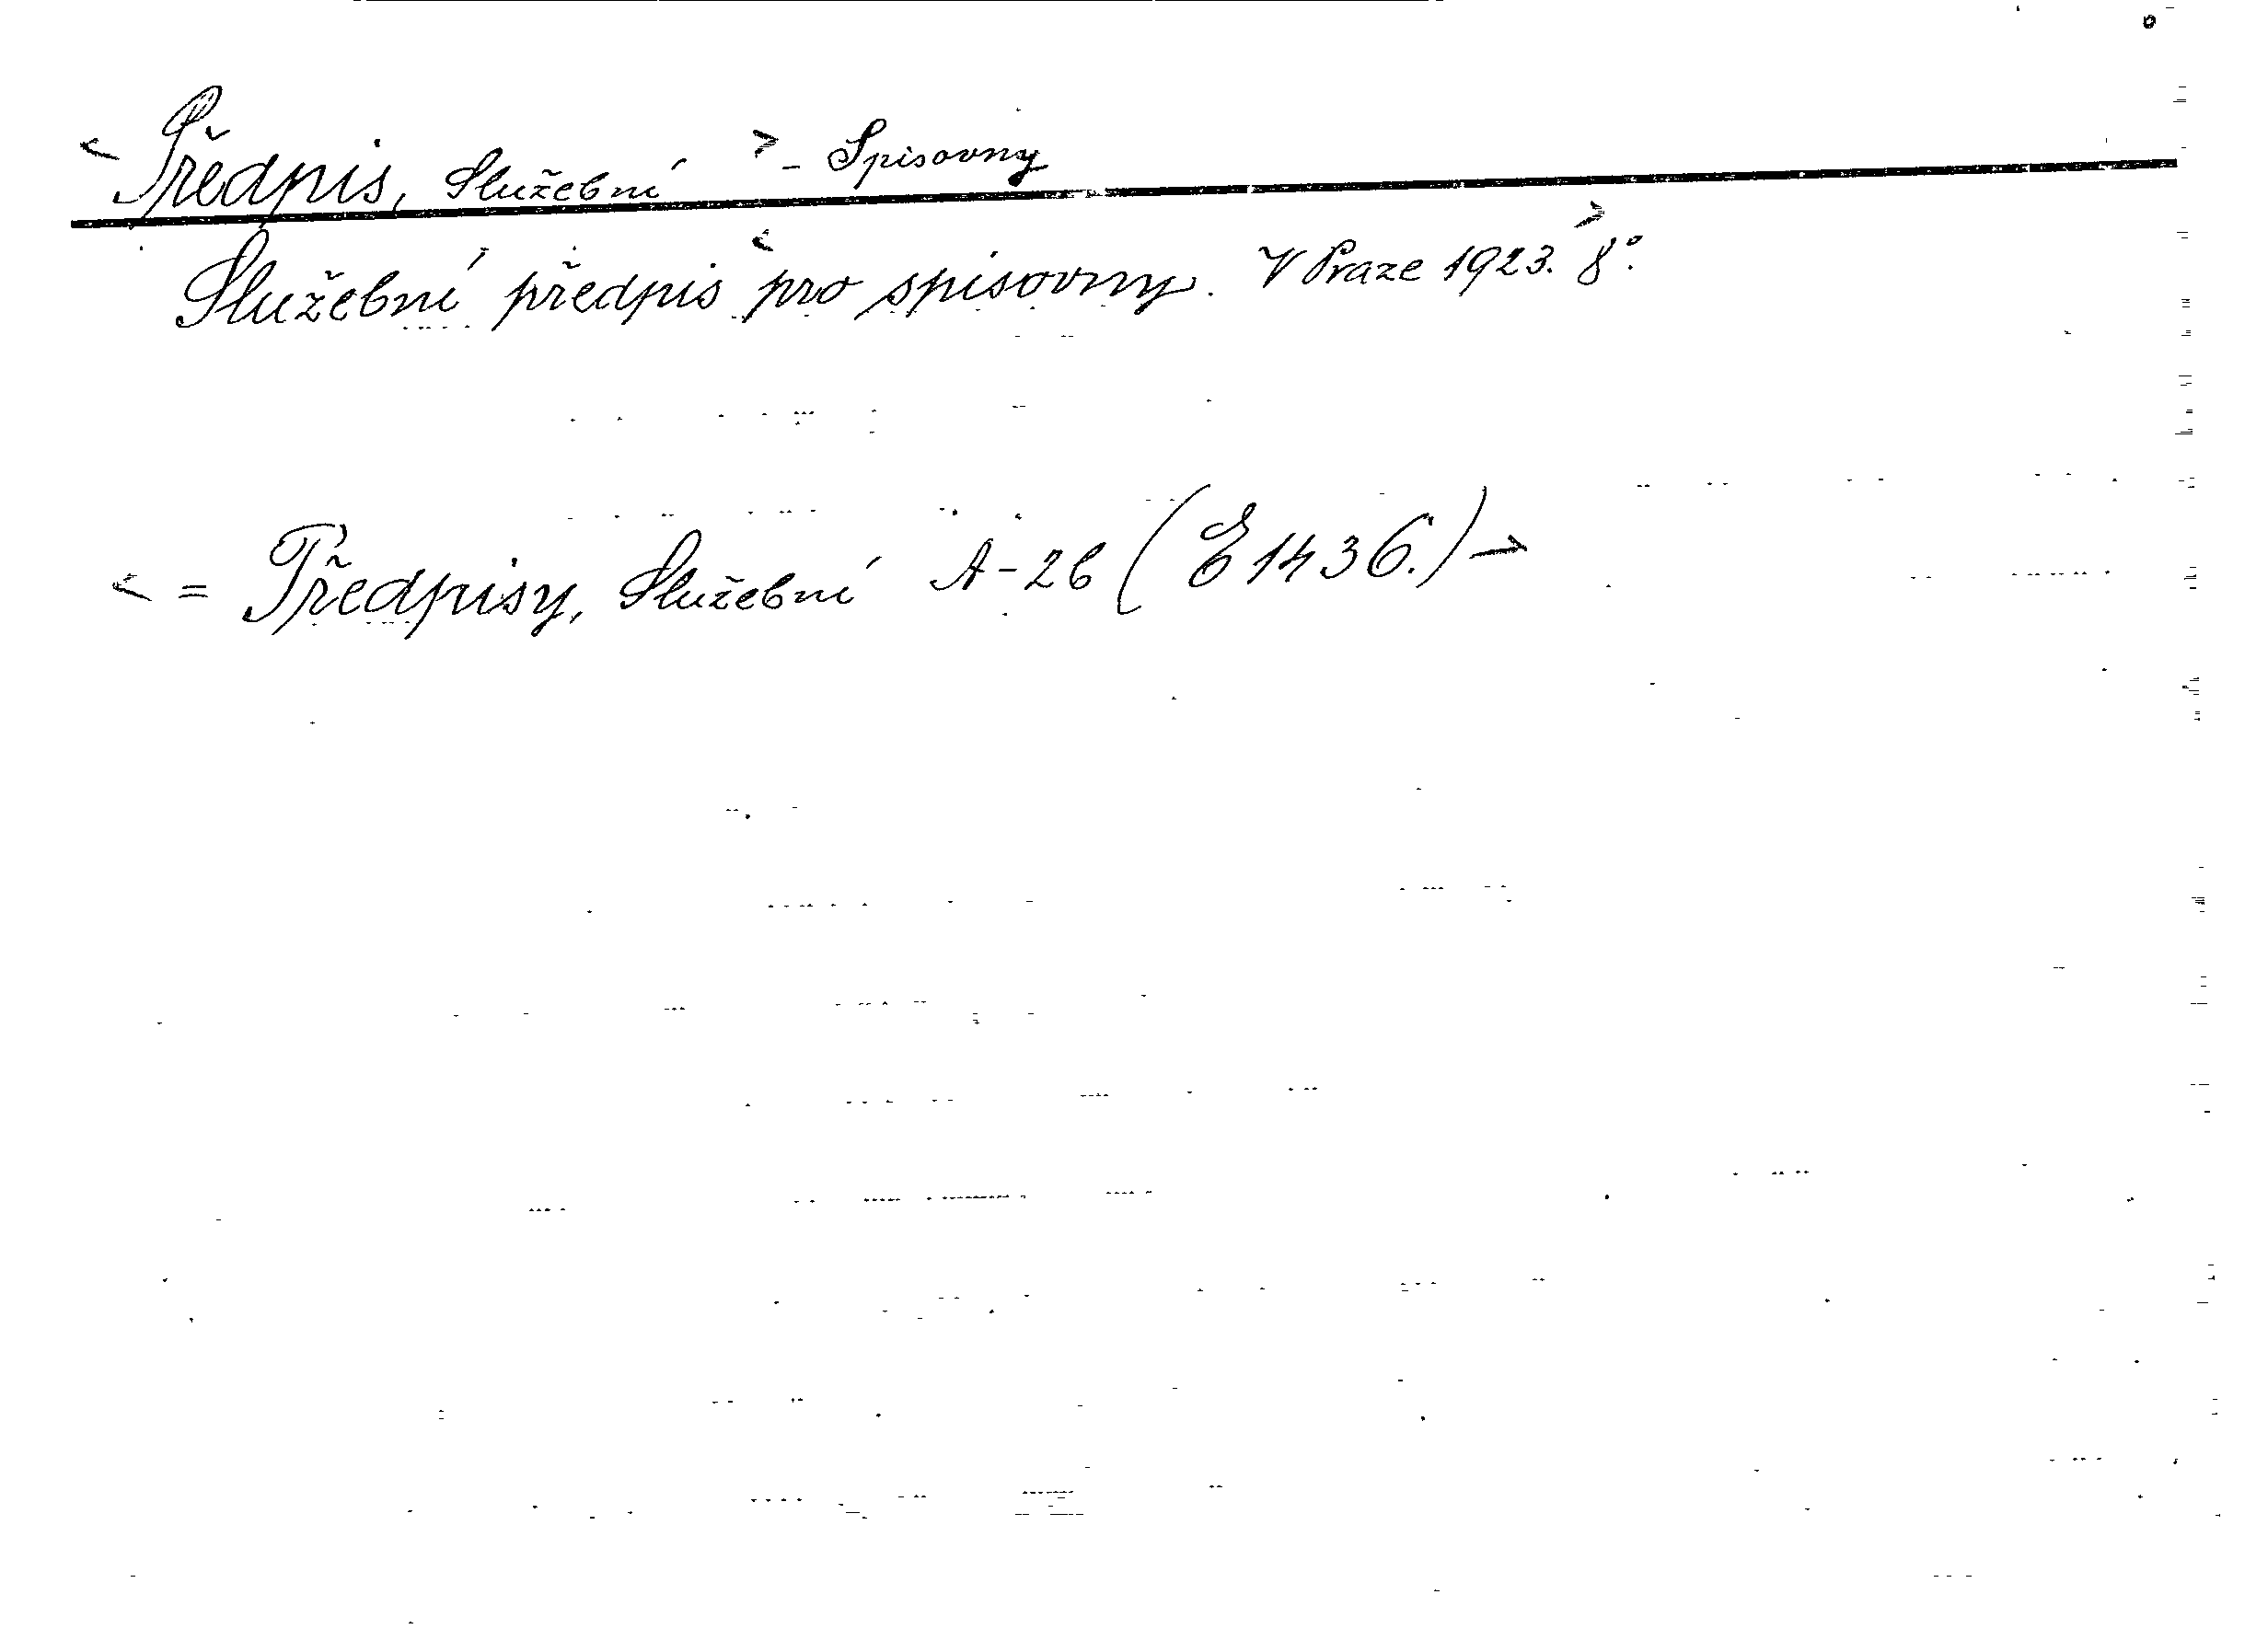 < Předpis, Služební > - Spisovny
Služební předpis < pro spisovny. V Praze 1923. > 8°.
< = Předpisy, Služební A-26 (E 1436.) →